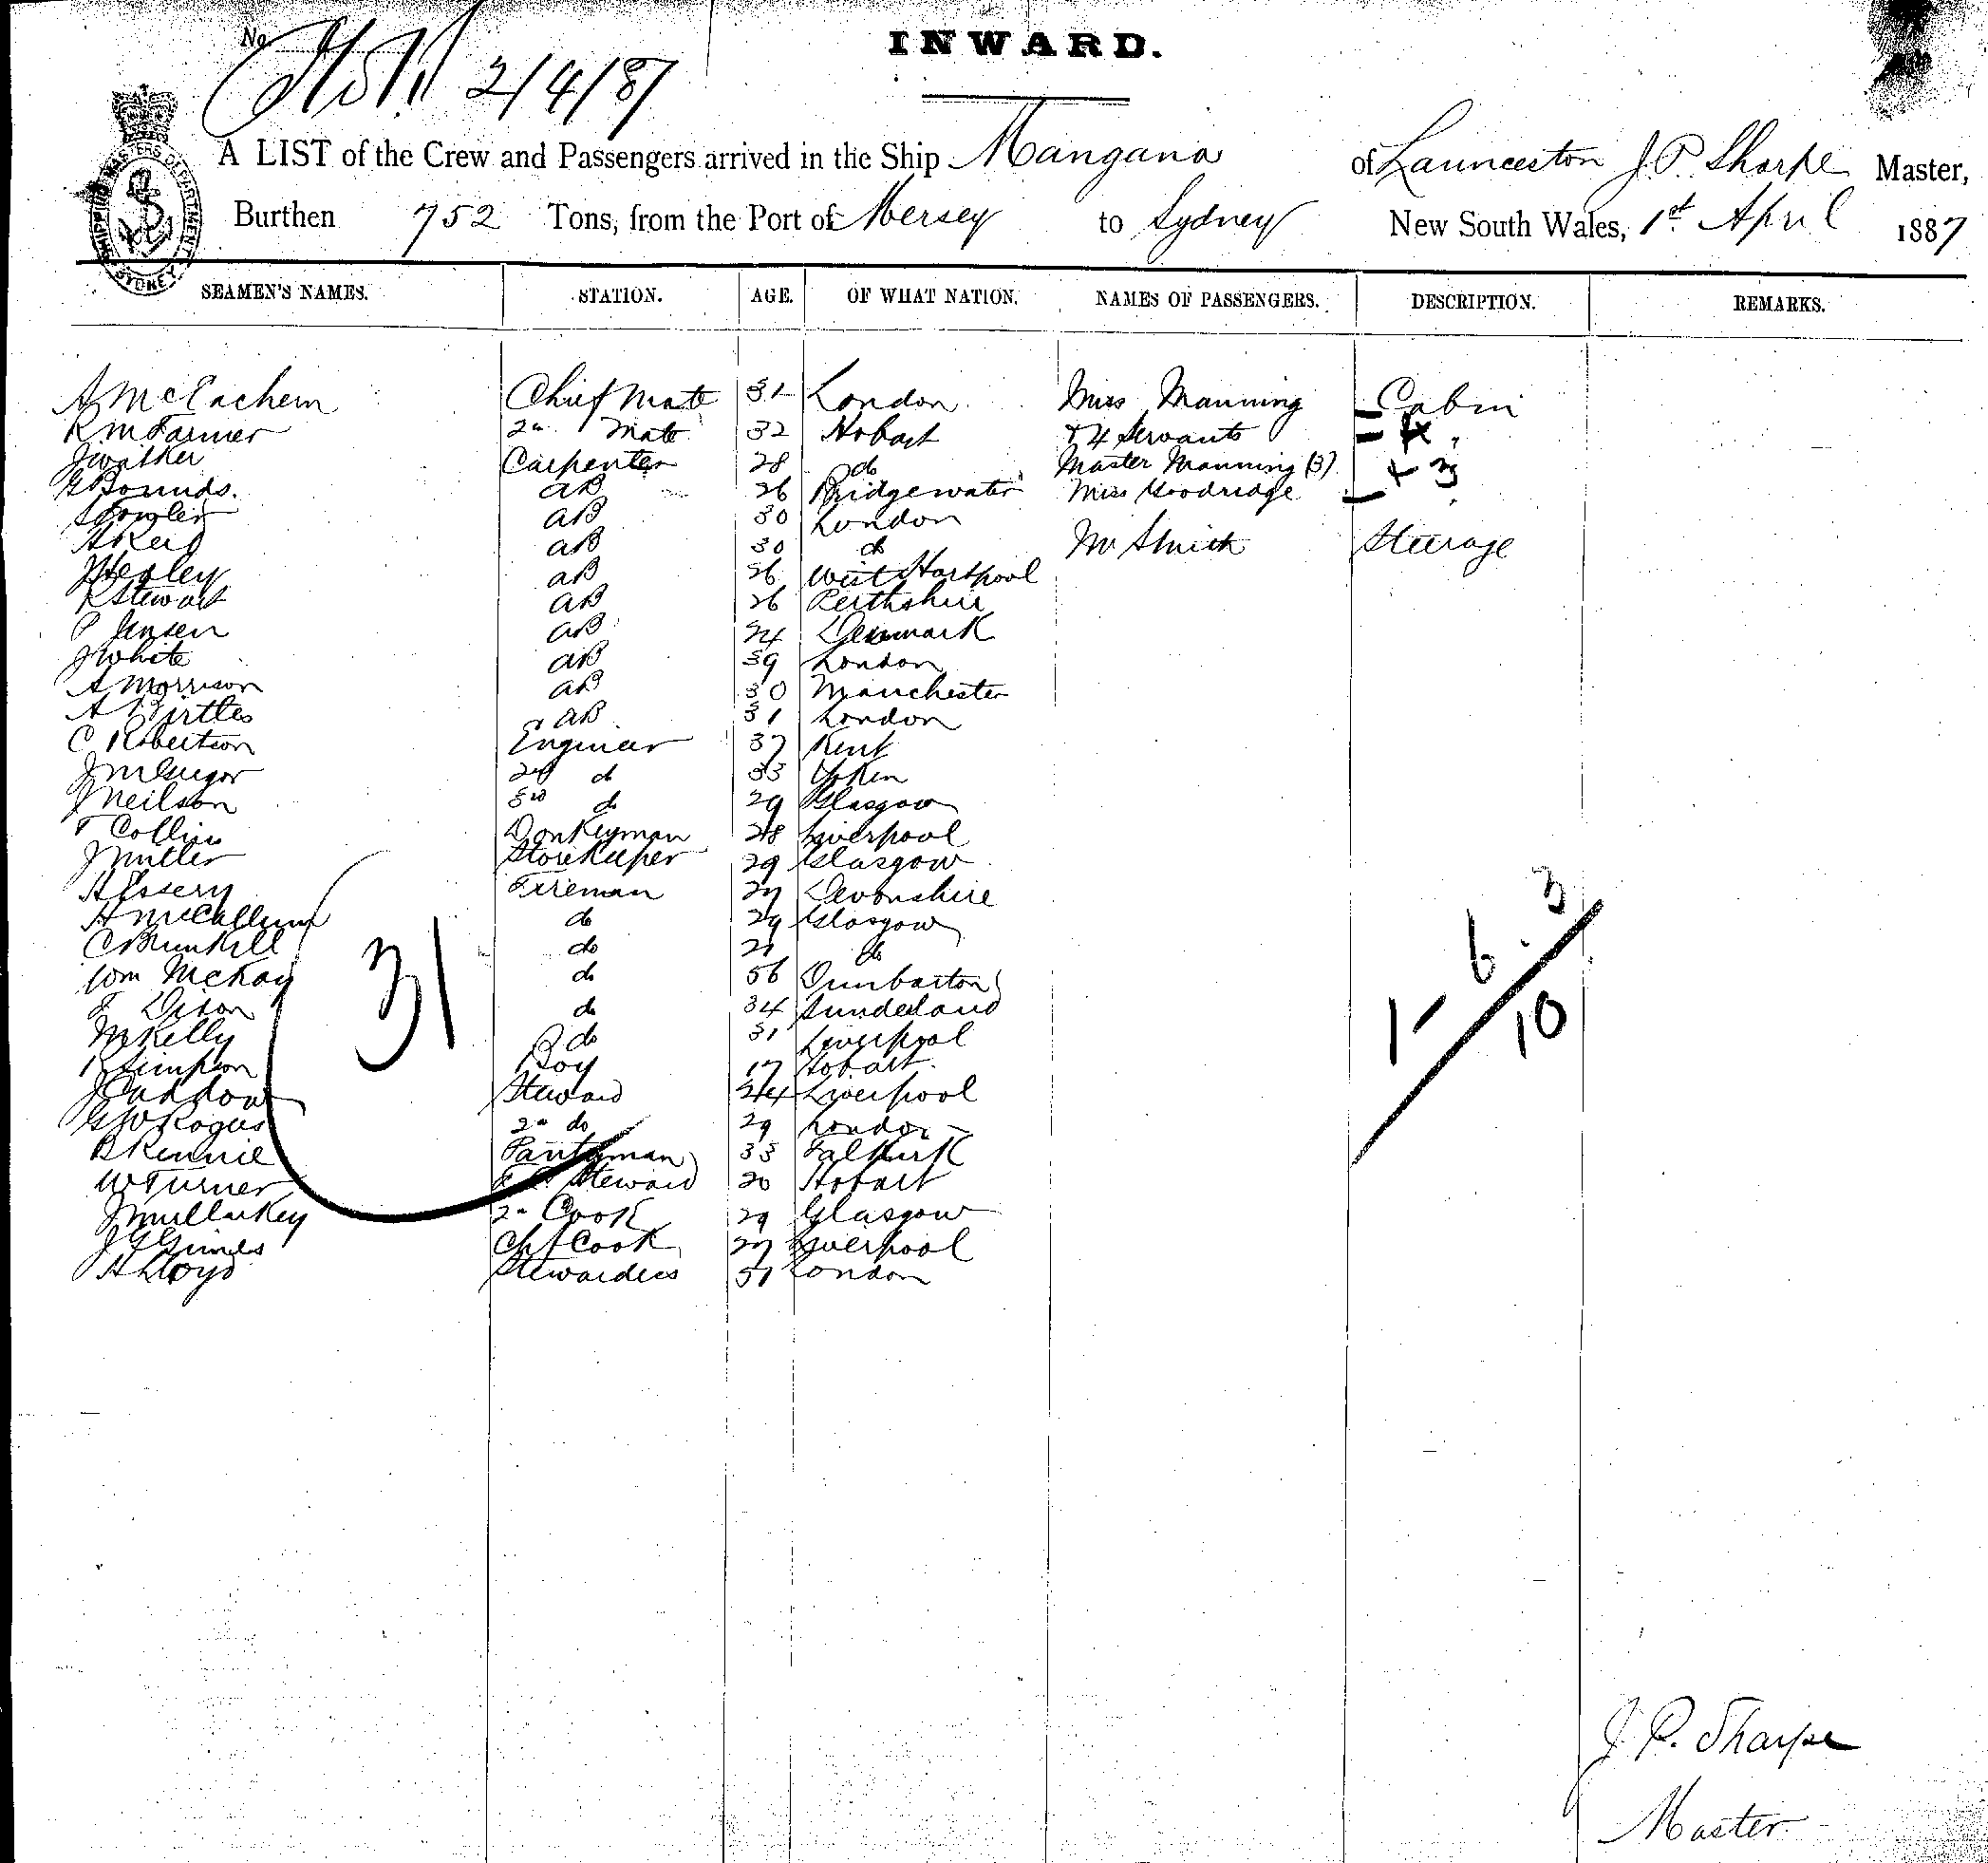 No
2/4/87
INWARD.
SHIPPING MASTERS DEPARTMENT SYDNEY
A LIST of the Crew and Passengers arrived in the Ship Mangana of Launceston J.P. Sharpe Master,
Burthen 752 Tons, from the Port of Mersey to Sydney New South Wales, 1st April 1887
SEAMEN'S NAMES. STATION. AGE. OF WHAT NATION. NAMES OF PASSENGERS. DESCRIPTION. REMARKS.
A McEachern Chief Mate 31 London Miss Manning Cabin
R M Farmer 2n Mate 32 Hobart & 4 Servants 4 "
J Walker Carpenter 28 do Master Manning (3) + 3
G Bounds. AB 26 Bridgewater Miss Woodridge
S Fowler AB 30 London
A Reid AB 30 do Mr Smith Steerage
J Healey AB 26 West Hartpool
R Stewart AB 26 Perthshire
P Jensen AB 24 Denmark
J White AB 39 London
A Morrison AB 30 Manchester
A Birtles AB 31 London
C Robertson Engineer 37 Kent
J McGregor 2nd do 33
J Neilson 3rd do 29 Glasgow
T Collins Donkeyman 28 Liverpool
J Miller Storekeeper 29 Glasgow
H Essery Fireman 27 Devonshire
A McCallum do 29 Glasgow
C Brunkill do 21 do
Wm McKay do 56 Dunbarton
Dixon do 34 Sunderland
M Kelly do 31 Liverpool
R Simpson Boy 17 Hobart
J Caddow Steward 44 Liverpool
G W Rogers 2n do 29 London
B Rennie Pantryman 33 Falkirk
W Turner Steward 20 Hobart
J Mullarkey 2n Cook 29 Glasgow
J G Grimes Chf Cook 27 Liverpool
A Lloyd Stewardess 51 London
31
1 - 6 . 3
10
J. P. Sharpe
Master